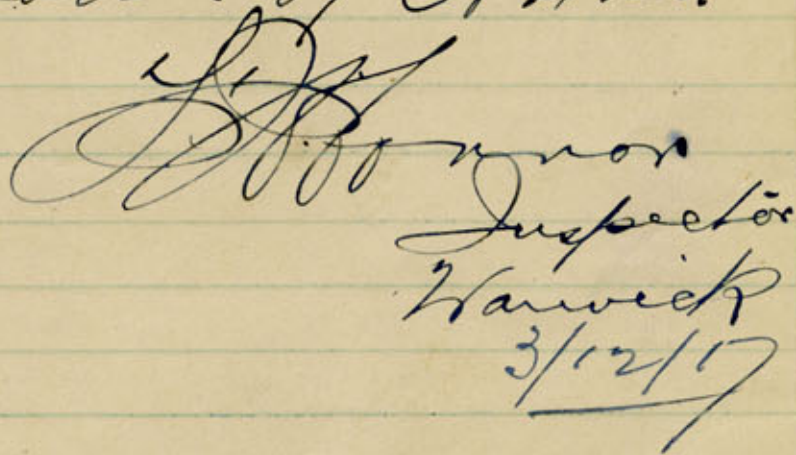 O'Connor
Inspector
Warwick
3/12/17